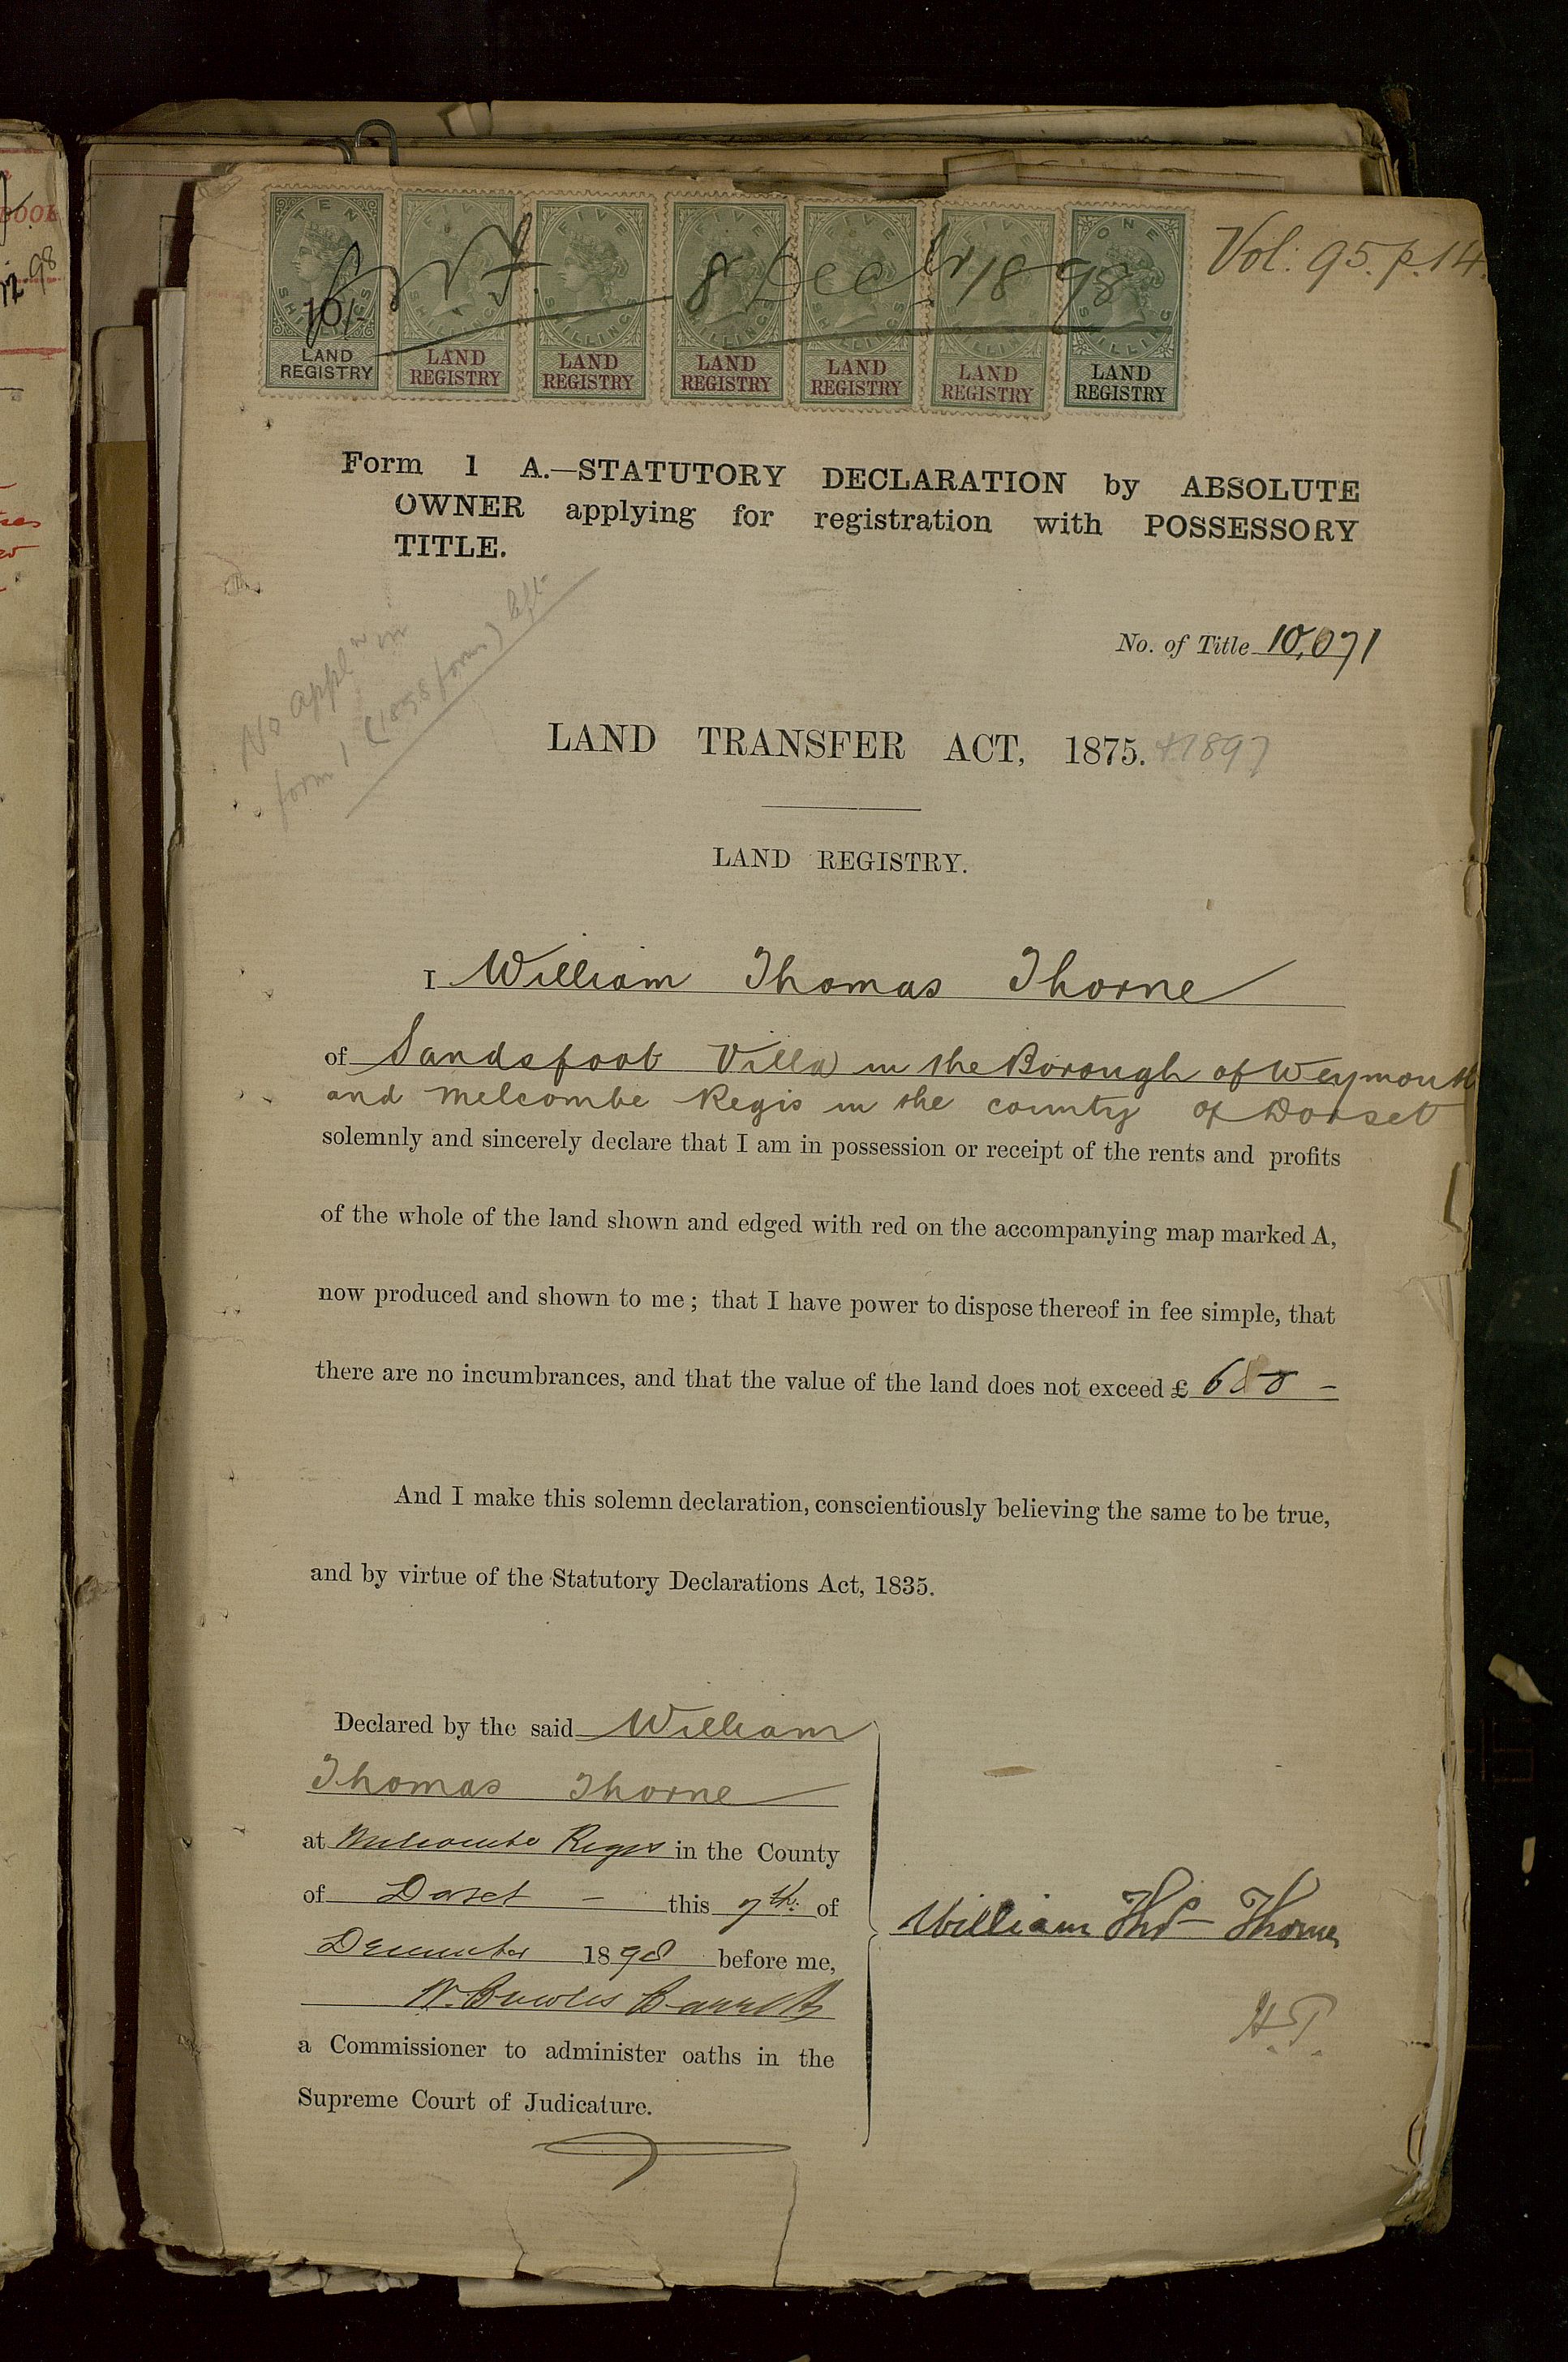 Vol: 95. p. 14.
TEN SHILLINGS FIVE SHILLINGS FIVE SHILLINGS FIVE SHILLINGS FIVE SHILLINGS FIVE SHILLINGS ONE SHILLING
10/- 8 Decbr 1898
LAND REGISTRY LAND REGISTRY LAND REGISTRY LAND REGISTRY LAND REGISTRY LAND REGISTRY LAND REGISTRY
Form 1 A.—STATUTORY DECLARATION by ABSOLUTE
OWNER applying for registration with POSSESSORY
TITLE.
No. of Title 10,071
No appln in
form 1 (1898 forms) left
LAND TRANSFER ACT, 1875. & 1897
LAND REGISTRY.
I William Thomas Thorne
of Sandsfoot Villa in the Borough of Weymouth
and Melcombe Regis in the county of Dorset
solemnly and sincerely declare that I am in possession or receipt of the rents and profits
of the whole of the land shown and edged with red on the accompanying map marked A,
now produced and shown to me; that I have power to dispose thereof in fee simple, that
there are no incumbrances, and that the value of the land does not exceed £
And I make this solemn declaration, conscientiously believing the same to be true,
and by virtue of the Statutory Declarations Act, 1835.
Declared by the said William
Thomas Thorne
at Melcombe Regis in the County
of Dorset — this 7th: of
December 1898 before me,
W. Bowles Barrett
a Commissioner to administer oaths in the
Supreme Court of Judicature.
William Thos Thorne
H.T.